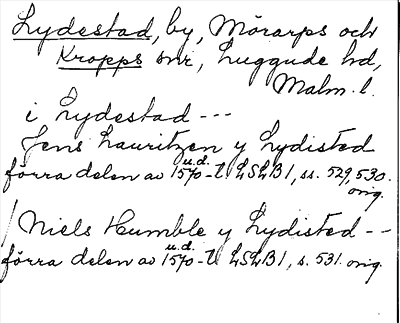 Lydestad, by, Mörarps och
Kropps snr, Luggude hd,
Malm. l.
i Lydestad ---
Jens Lauritzen y Lydisted
u.d.
förra delen av 1570-t. LSLB 1, ss. 529, 530.
orig.
Niels Humble y Lydisted --
u.d.
förra delen av 1570-t. LSLB 1, s. 531. orig.